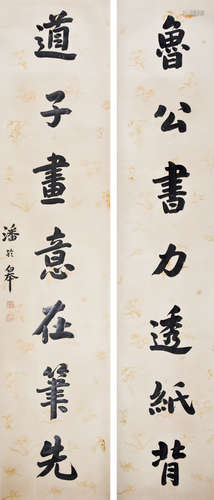 魯公書力透紙背
道子畫意在筆先
潘於皋